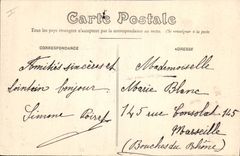 Carte Postale
Tous les pays étrangers n'acceptent pas la correspondance au verso. (Se renseigner à la poste)
CORRESPONDANCE
ADRESSE
Amitiés sincères et
lointain bonjour
Simone
Mademoiselle
Marie Blanc
145 rue Consolat 145
Marseille
(Bouches du Rhône)